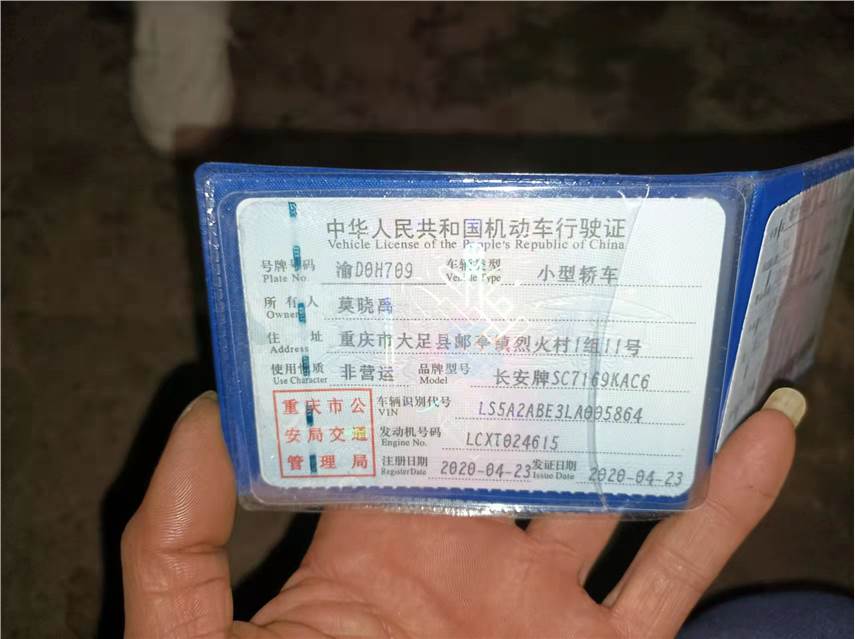 中华人民共和国机动车行驶证
Vehicle License of the People's Republic of China
号牌号码 渝D0H709 车辆类型 小型轿车
Plate No. Vehicle Type
所有人 莫晓禹
Owner
住址 重庆市大足县邮亭镇烈火村1组11号
Address
使用性质 非营运 品牌型号 长安牌SC7169KAC6
Use Character Model
重庆市公安局交通管理局
车辆识别代号 LS5A2ABE3LA005864
VIN
发动机号码 LCXT024615
Engine No.
注册日期 2020-04-23 发证日期 2020-04-23
Register Date Issue Date